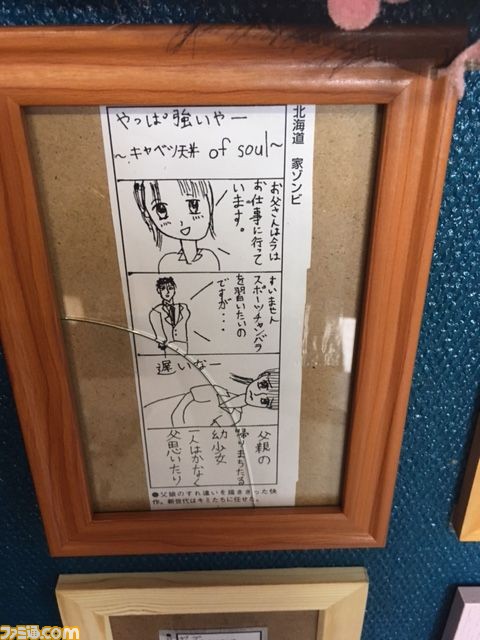 北海道　家ゾンビ
やっぱ強いやー
～キャベツ天丼 of soul～
お父さんは今は
お仕事に行って
います。
すいません
スポーツチャンバラ
を習いたいの
ですが・・・
遅いなー
父親の
帰りまちたる
幼少女
一人はかなく
父思いたり
●父娘のすれ違いを描ききった快
作。新世代はキミたちに任せる。
ファミ通.com